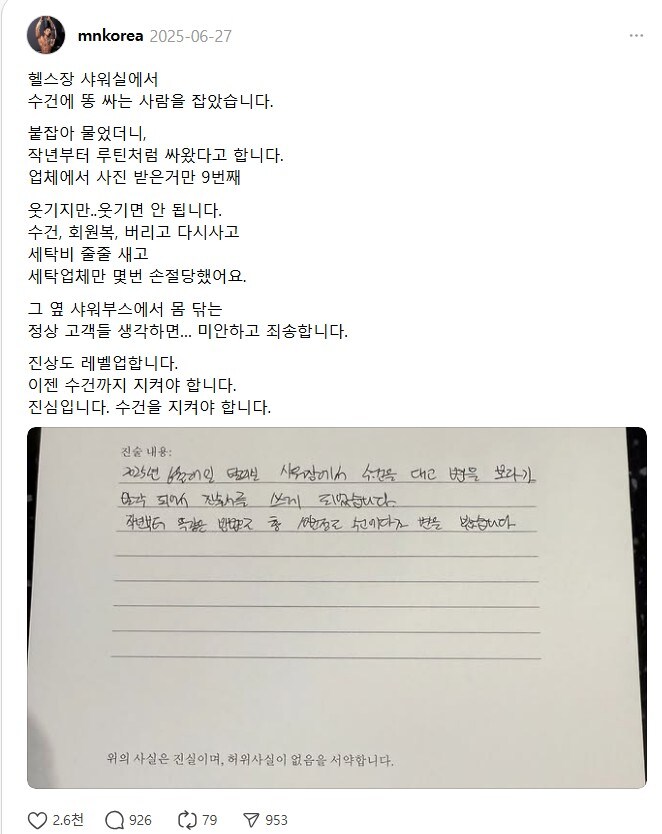 mnkorea 2025-06-27
헬스장 샤워실에서
수건에 똥 싸는 사람을 잡았습니다.
붙잡아 물었더니,
작년부터 루틴처럼 싸왔다고 합니다.
업체에서 사진 받은거만 9번째
웃기지만..웃기면 안 됩니다.
수건, 회원복, 버리고 다시사고
세탁비 줄줄 새고
세탁업체만 몇번 손절당했어요.
그 옆 샤워부스에서 몸 닦는
정상 고객들 생각하면... 미안하고 죄송합니다.
진상도 레벨업합니다.
이젠 수건까지 지켜야 합니다.
진심입니다. 수건을 지켜야 합니다.
진술 내용:
2025년 샤워장에서 수건을 대고 변을 보다가
발각 되어서 진술서를 쓰게 되었습니다.
작년부터 똑같은 방법으로 총 수건에다가 변을 봤습니다
위의 사실은 진실이며, 허위사실이 없음을 서약합니다.
2.6천 926 79 953